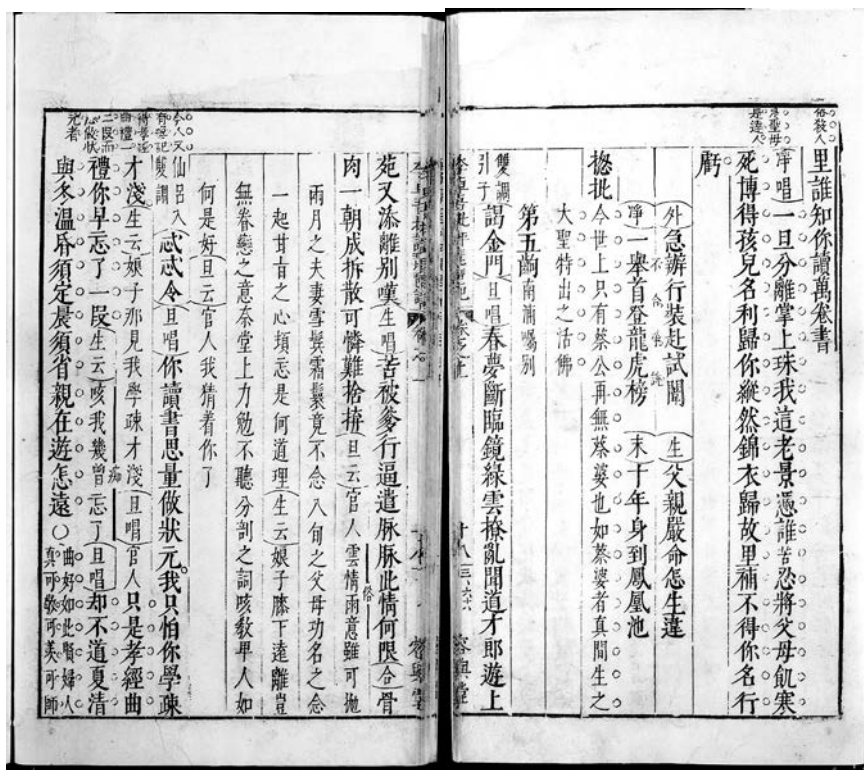 里誰知你讀萬卷書
淨唱一旦分離掌上珠我這老景憑誰苦恐將父母飢寒
死博得孩兒名利歸你縱然錦衣歸故里補不得你名行
虧
外急辦行裝赴試闈 生父親嚴命怎生違
淨一舉首登龍虎榜 末十年身到鳳凰池
揔批今世上只有蔡公再無蔡婆也如蔡婆者真間生之
大聖特出之活佛
第五齣南浦囑別
雙調引子謁金門旦唱春夢斷臨鏡綠雲撩亂聞道才郎遊上
十八
容與堂
苑又添離別嘆生唱苦被爹行逼遣脉脉此情何限合骨
肉一朝成拆散可憐難捨拚旦云官人雲情雨意雖可拋
俗
兩月之夫妻雪鬢霜鬟竟不念八旬之父母功名之念
一起甘旨之心頓忘是何道理生云娘子膝下遠離豈
無眷戀之意奈堂上力勉不聽分剖之詞咳敎卑人如
何是好旦云官人我猜着你了
仙呂入雙調忒忒令旦唱你讀書思量做狀元我只怕你學疎
才淺生云娘子那見我學疎才淺旦唱官人只是孝經曲
痴
禮你早忘了一段生云咳我幾曾忘了旦唱却不道夏凊
與冬溫昏須定晨須省親在遊怎遠〇曲好如此賢婦人真可敬可羙可師